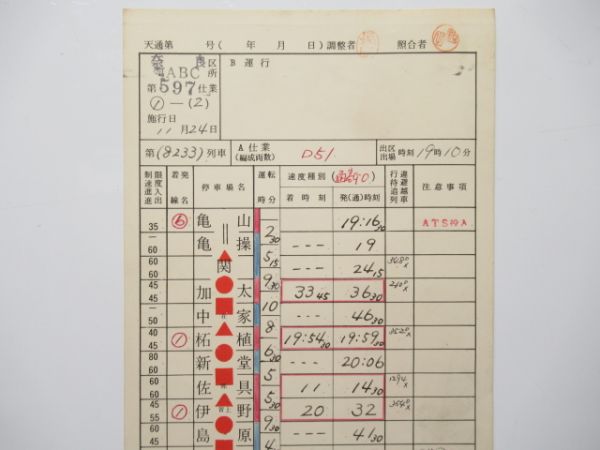 天通第 号( 年 月 日)調整者 照合者
奈良区
ABC所
第597仕業
①—(2)
施行日
11月24日
B 運行
第(8233)列車
A 仕業
(編成両数)
D51
出区
出場
時刻19時10分
制限速度
進入進出
着発線名
停車場名
運転時分
速度種別(通客A0)
着時刻
発(通)時刻
行違待避追越列車
注意事項
35 ⑥ 亀山 — 19:16 ATS切入
2 30
亀操 --- 19
5 15
関 --- 24 15
9 30
45 45 加太 33 45 36 30
10
中家 --- 46 30
8
40 45 ① 柘植 19:54 30 19:59 30
6 30
新堂 --- 20:06
5
60 60 佐具 11 14 30
5 30
60 55 ① 伊野 20 32
9 30
45 島原 --- 41 30
4